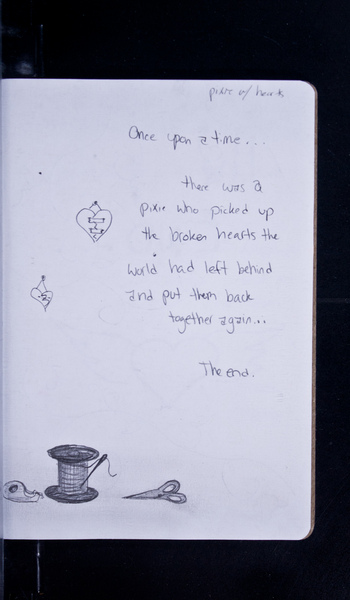 pixie w/ hearts
Once upon a time...
there was a
pixie who picked up
the broken hearts the
world had left behind
and put them back
together again...
The end.